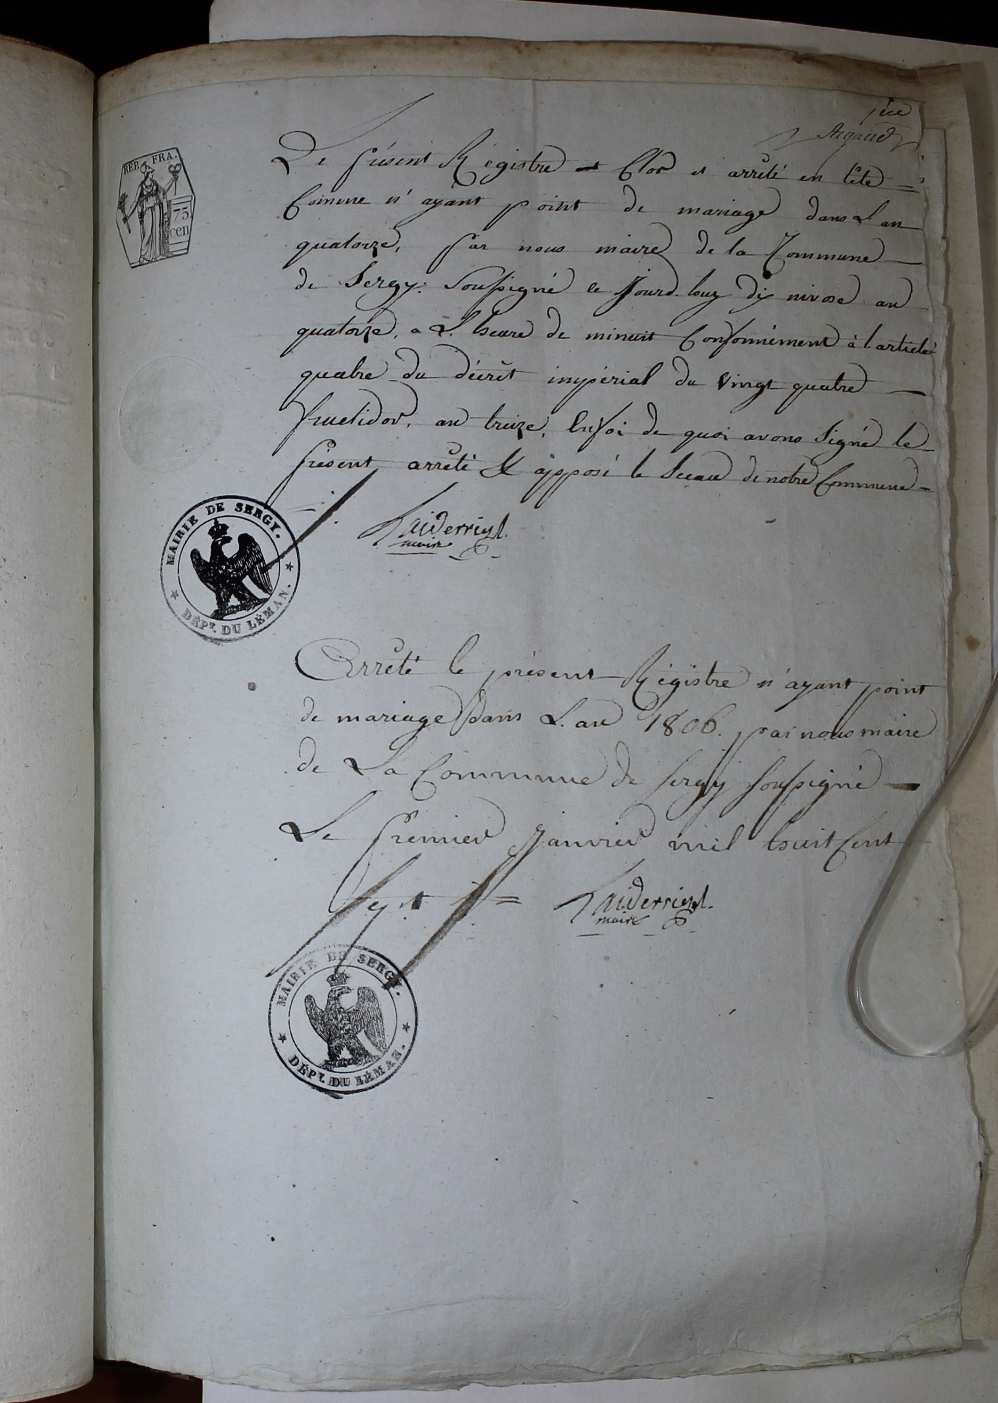 1ere
Argaud
REP. FRA.
75
cen
Le présent Régistre est Clos et arrêté en tête
Comme n'ayant point de mariage dans L'an
quatorze, par nous maire de la Commune
de Sergy. Soussigné ce jourd-huy dix nivose an
quatorze, a L'heure de minuit Conformément à l'article
quatre du décrêt impérial du Vingt quatre
fructidor, an treize, En foi de quoi avons Signé le
présent arrêté & apposé le Sceau de notre Commune
maire
MAIRIE DE SERGY.
DÉPT. DU LÉMAN.
Arrêté le présent Régistre n'ayant point
de mariage dans L'an 1806. par nous maire
de La Commune de Sergy Soussigné
Le premier Janvier mil huit Cent
Sept
maire
MAIRIE DE SERGY.
DÉPT. DU LÉMAN.